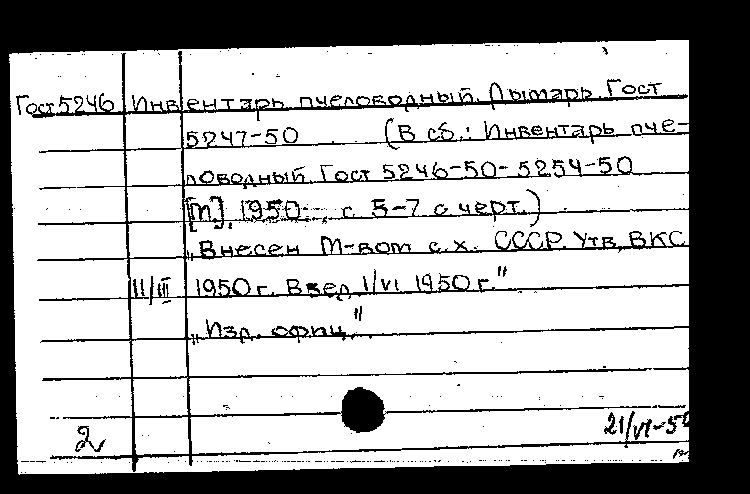 Гост 5246 Инвентарь пчеловодный. Дымарь. Гост
5247-50 (В сб.: Инвентарь пче-
ловодный. Гост 5246-50-5254-50
[М], 1950, с. 5-7 с черт.)
„Внесен М-вом с.х. СССР. Утв. ВКС
11/III 1950 г. Введ. 1/VI 1950 г."
„Изд. офиц."
2
21/VI-50